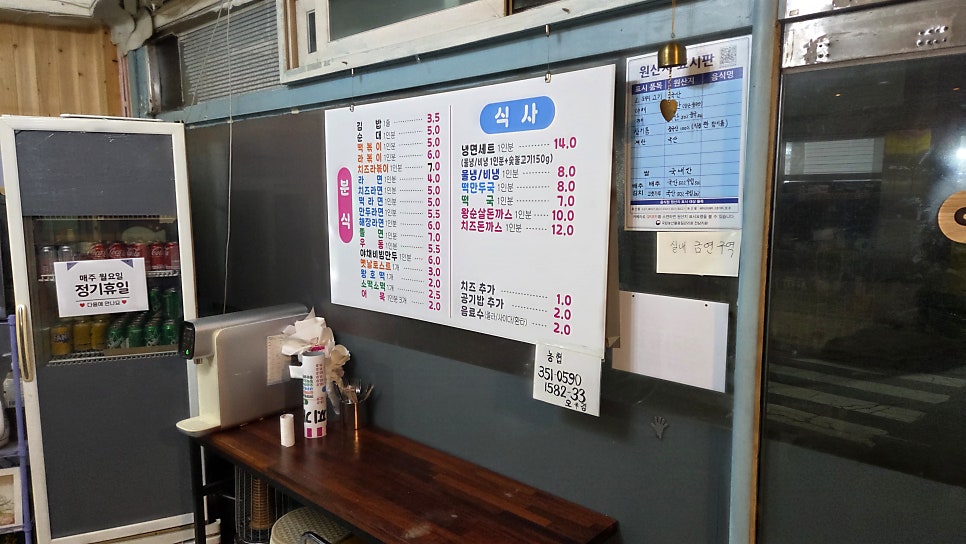 매주 월요일
정기휴일
♥ 다음에 만나요 ♥
분식
김 밥 1줄 3.5
순 대 1인분 5.0
떡 볶 이 1인분 5.0
라 볶 이 1인분 6.0
치즈라볶이 1인분 7.0
라 면 1인분 4.0
치즈라면 1인분 5.0
떡 라 면 1인분 5.0
만두라면 1인분 5.5
해장라면 1인분 5.5
쫄 면 1인분 7.0
우 동 1인분 5.5
야채비빔만두 1인분 6.0
옛날토스트 1개 3.0
왕 호 떡 1개 2.0
소떡소떡 1개 2.5
어 묵 1인분 3개 2.0
식 사
냉면세트 1인분 14.0
(물냉/비냉 1인분+숯불고기150g)
물냉/비냉 1인분 8.0
떡만두국 1인분 8.0
떡 국 1인분 7.0
왕순살돈까스 1인분 10.0
치즈돈까스 1인분 12.0
치즈 추가 1.0
공기밥 추가 2.0
음료수(콜라/사이다/환타) 2.0
원산지 표시판
표시 품목 원산지 음식명
쌀 국내산
배추 배추
김치
실내 금연구역
농협
351-0590
1582-33